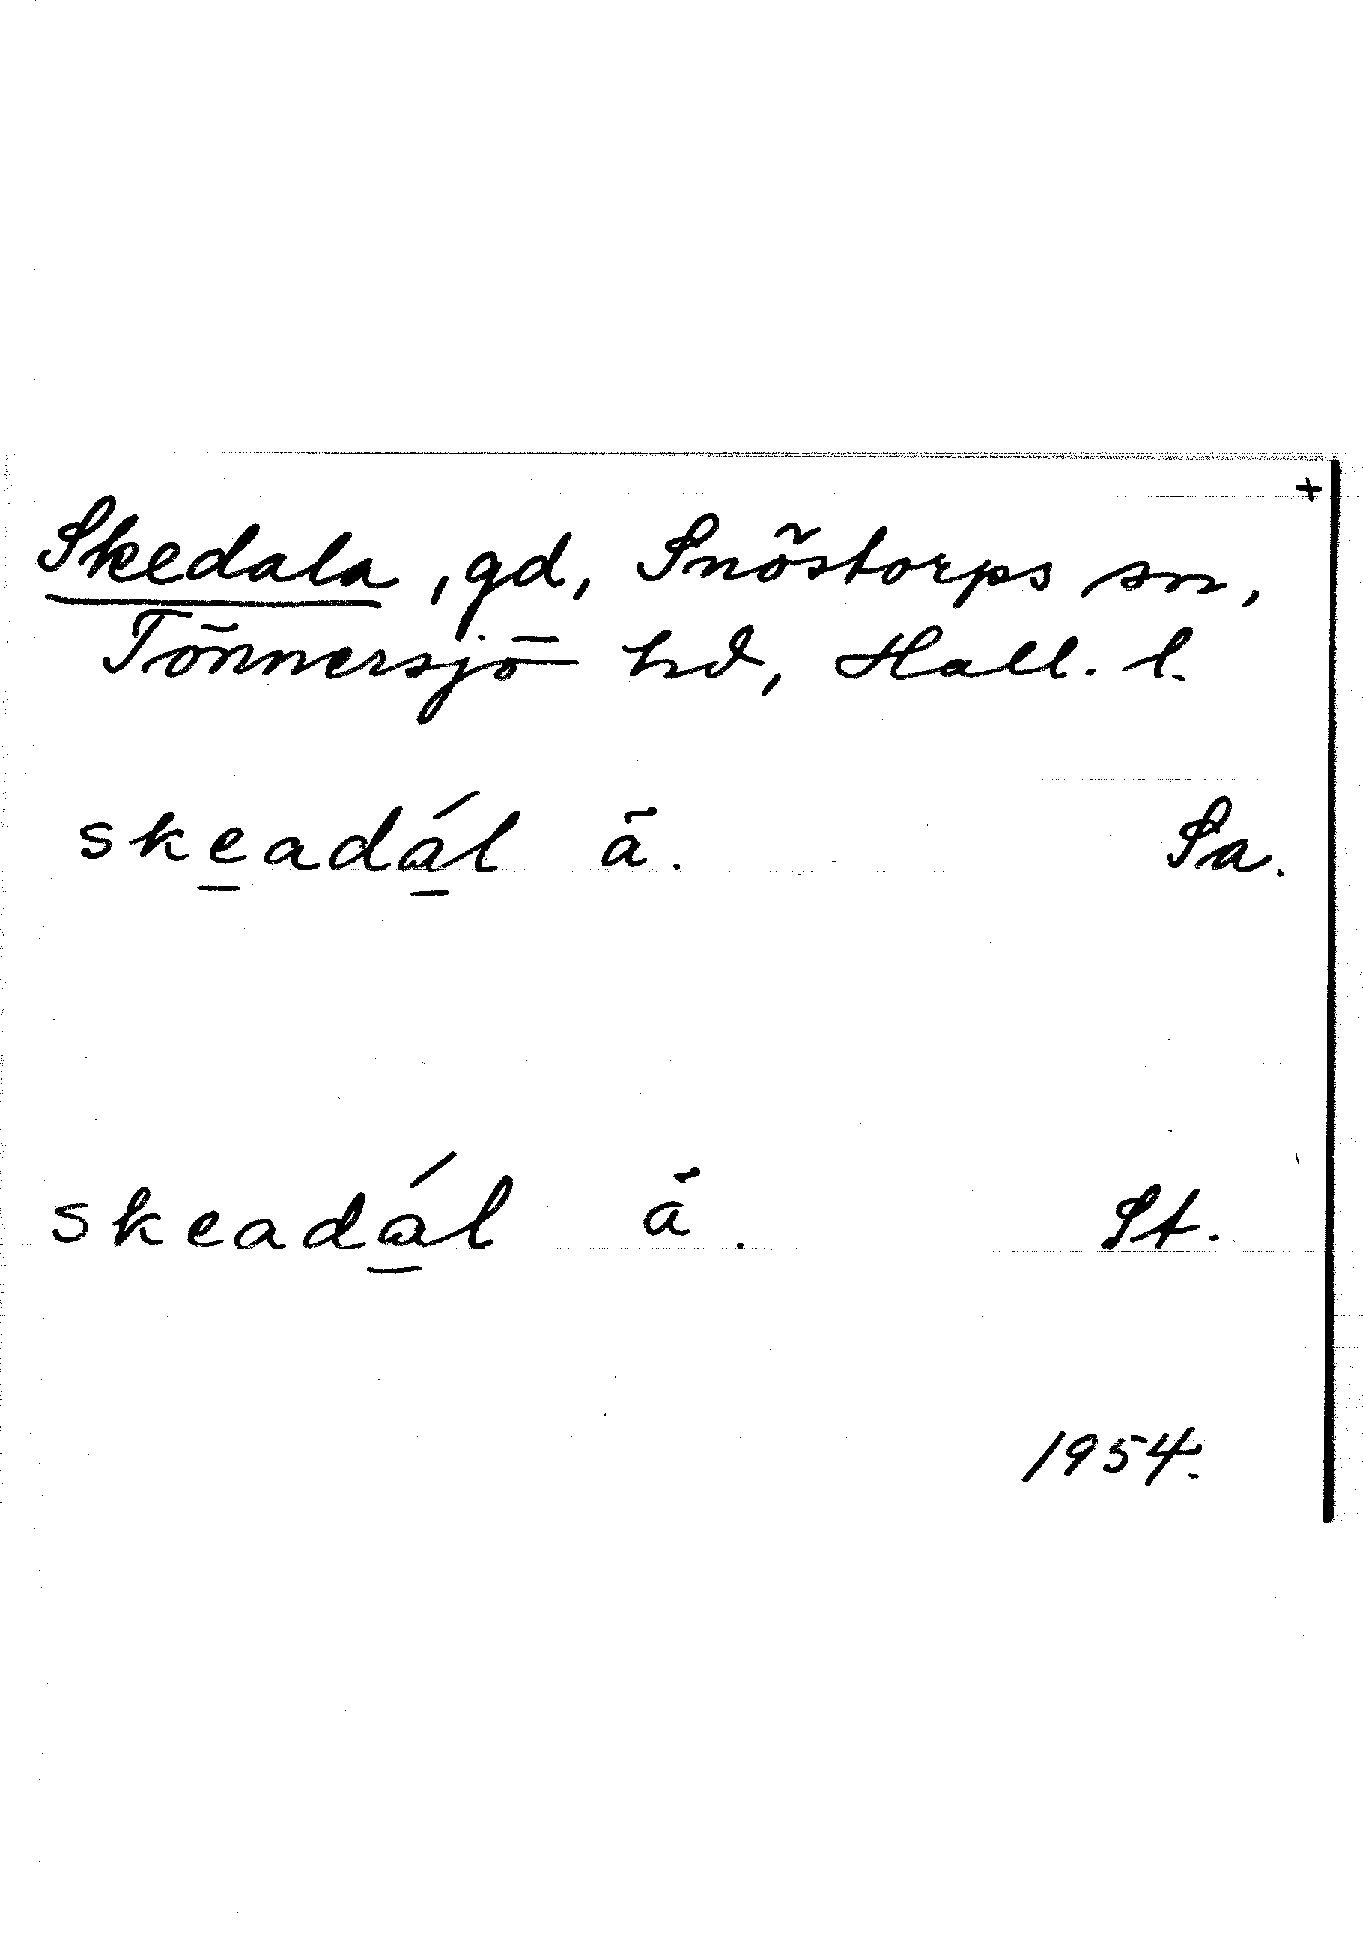 +
Skedala, gd, Snöstorps sn,
Tönnersjö hd, Hall. l.
skeadál ā. Sa.
skeadál ā. St.
1954.